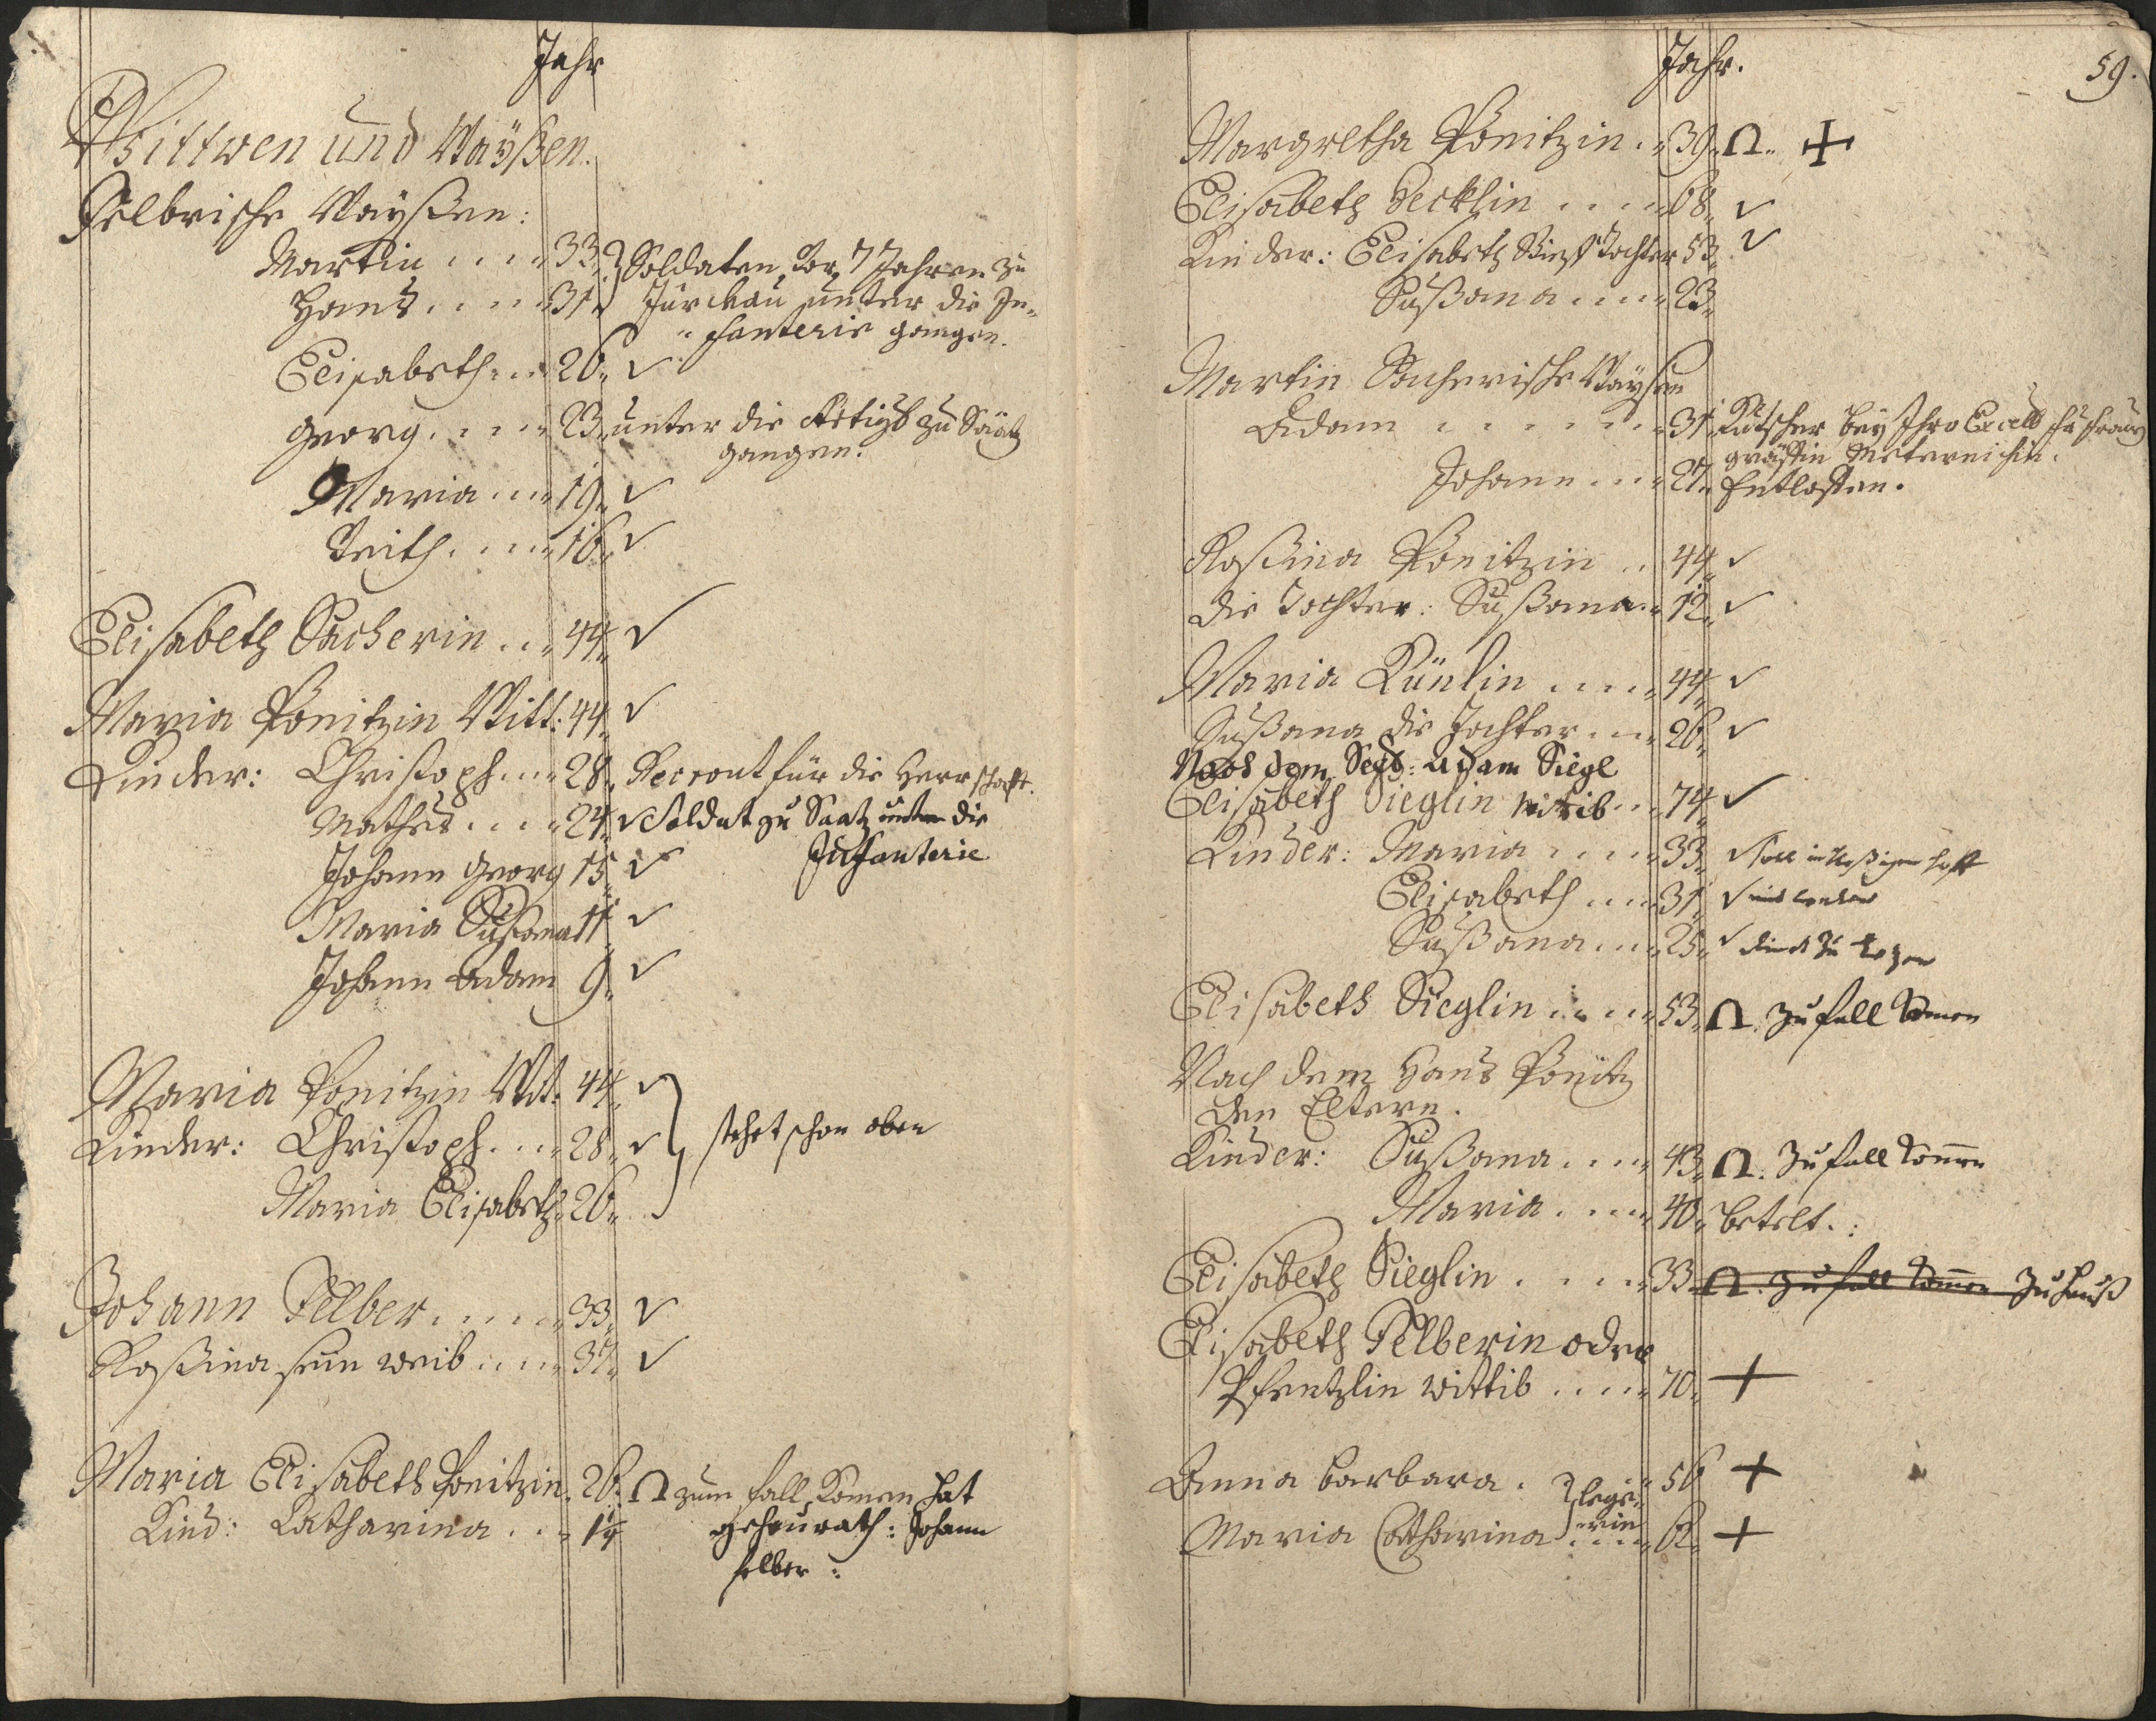 Jahr
Wittwen und Waÿßen.
Felbrische Waÿßen:
Martin .... 33. Soldaten, Vor 7 Jahren zu
Hans .... 31. unter die In-
fanterie gangen.
Elisabeth ... 26. ✓
Georg .... 23. unter die zu Säätz
gangen.
Maria ... 19. ✓
Veith .... 16. ✓
Elisabeth Sacherin ... 44. ✓
Maria Ponitzin Witt: 44. ✓
Kinder: Christoph ... 28. für die Herrschafft.
Mathes .... 24. ✓ Soldat zu Saatz unter die
Infanterie
Johann Georg 15. ✓
Maria Sußana 11. ✓
Johann Adam 9. ✓
Maria Ponitzin Wit: 44. ✓
Kinder: Christoph .... 28. ✓ stehet schon oben
Maria Elisabeth 26.
Johann Felber .... 33. ✓
Roßina sein weib .... 37. ✓
Maria Elisabeth Ponitzin. 26. Ω zum fall Komen hat
Kind: Catharina ... 1¼ geheurath: Johann
felber:
Jahr.
59.
Margretha Ponitzin .. 39. Ω. +
Elisabeth Decklin .... 68. ✓
Kinder: Elisabeth Tochter 53. ✓
Sußana .... 23.
Martin Sacherische Waÿsen
Adam ...... 31. Kutscher beÿ Ihro Excell
gräffin Meternichin.
Johann ... 27. Entloffen.
Roßina Ponitzin .. 44. ✓
die Tochter: Sußana. 12. ✓
Maria Künlin .... 44. ✓
Sußana die Tochter ... 26. ✓
Nach dem Adam Siegl
Elisabeth Sieglin wittib ... 74. ✓
Kinder: Maria .... 33. ✓
Elisabeth .... 31. ✓
Sußana .... 25. ✓ dient zu
Elisabeth Sieglin .... 53. Ω. Zu fall Komen
Nach dem Hans Ponitz
den Eltern.
Kinder: Sußana .... 43. Ω. Zu fall Komen
Maria .... 40. betelt.:
Elisabeth Sieglin .... 33. Ω. Zu fall Komen Zu hauß
Elisabeth Felberin oder
wittib .... 70. +
Anna barbara . 56 +
Maria Catharina .... 62. +